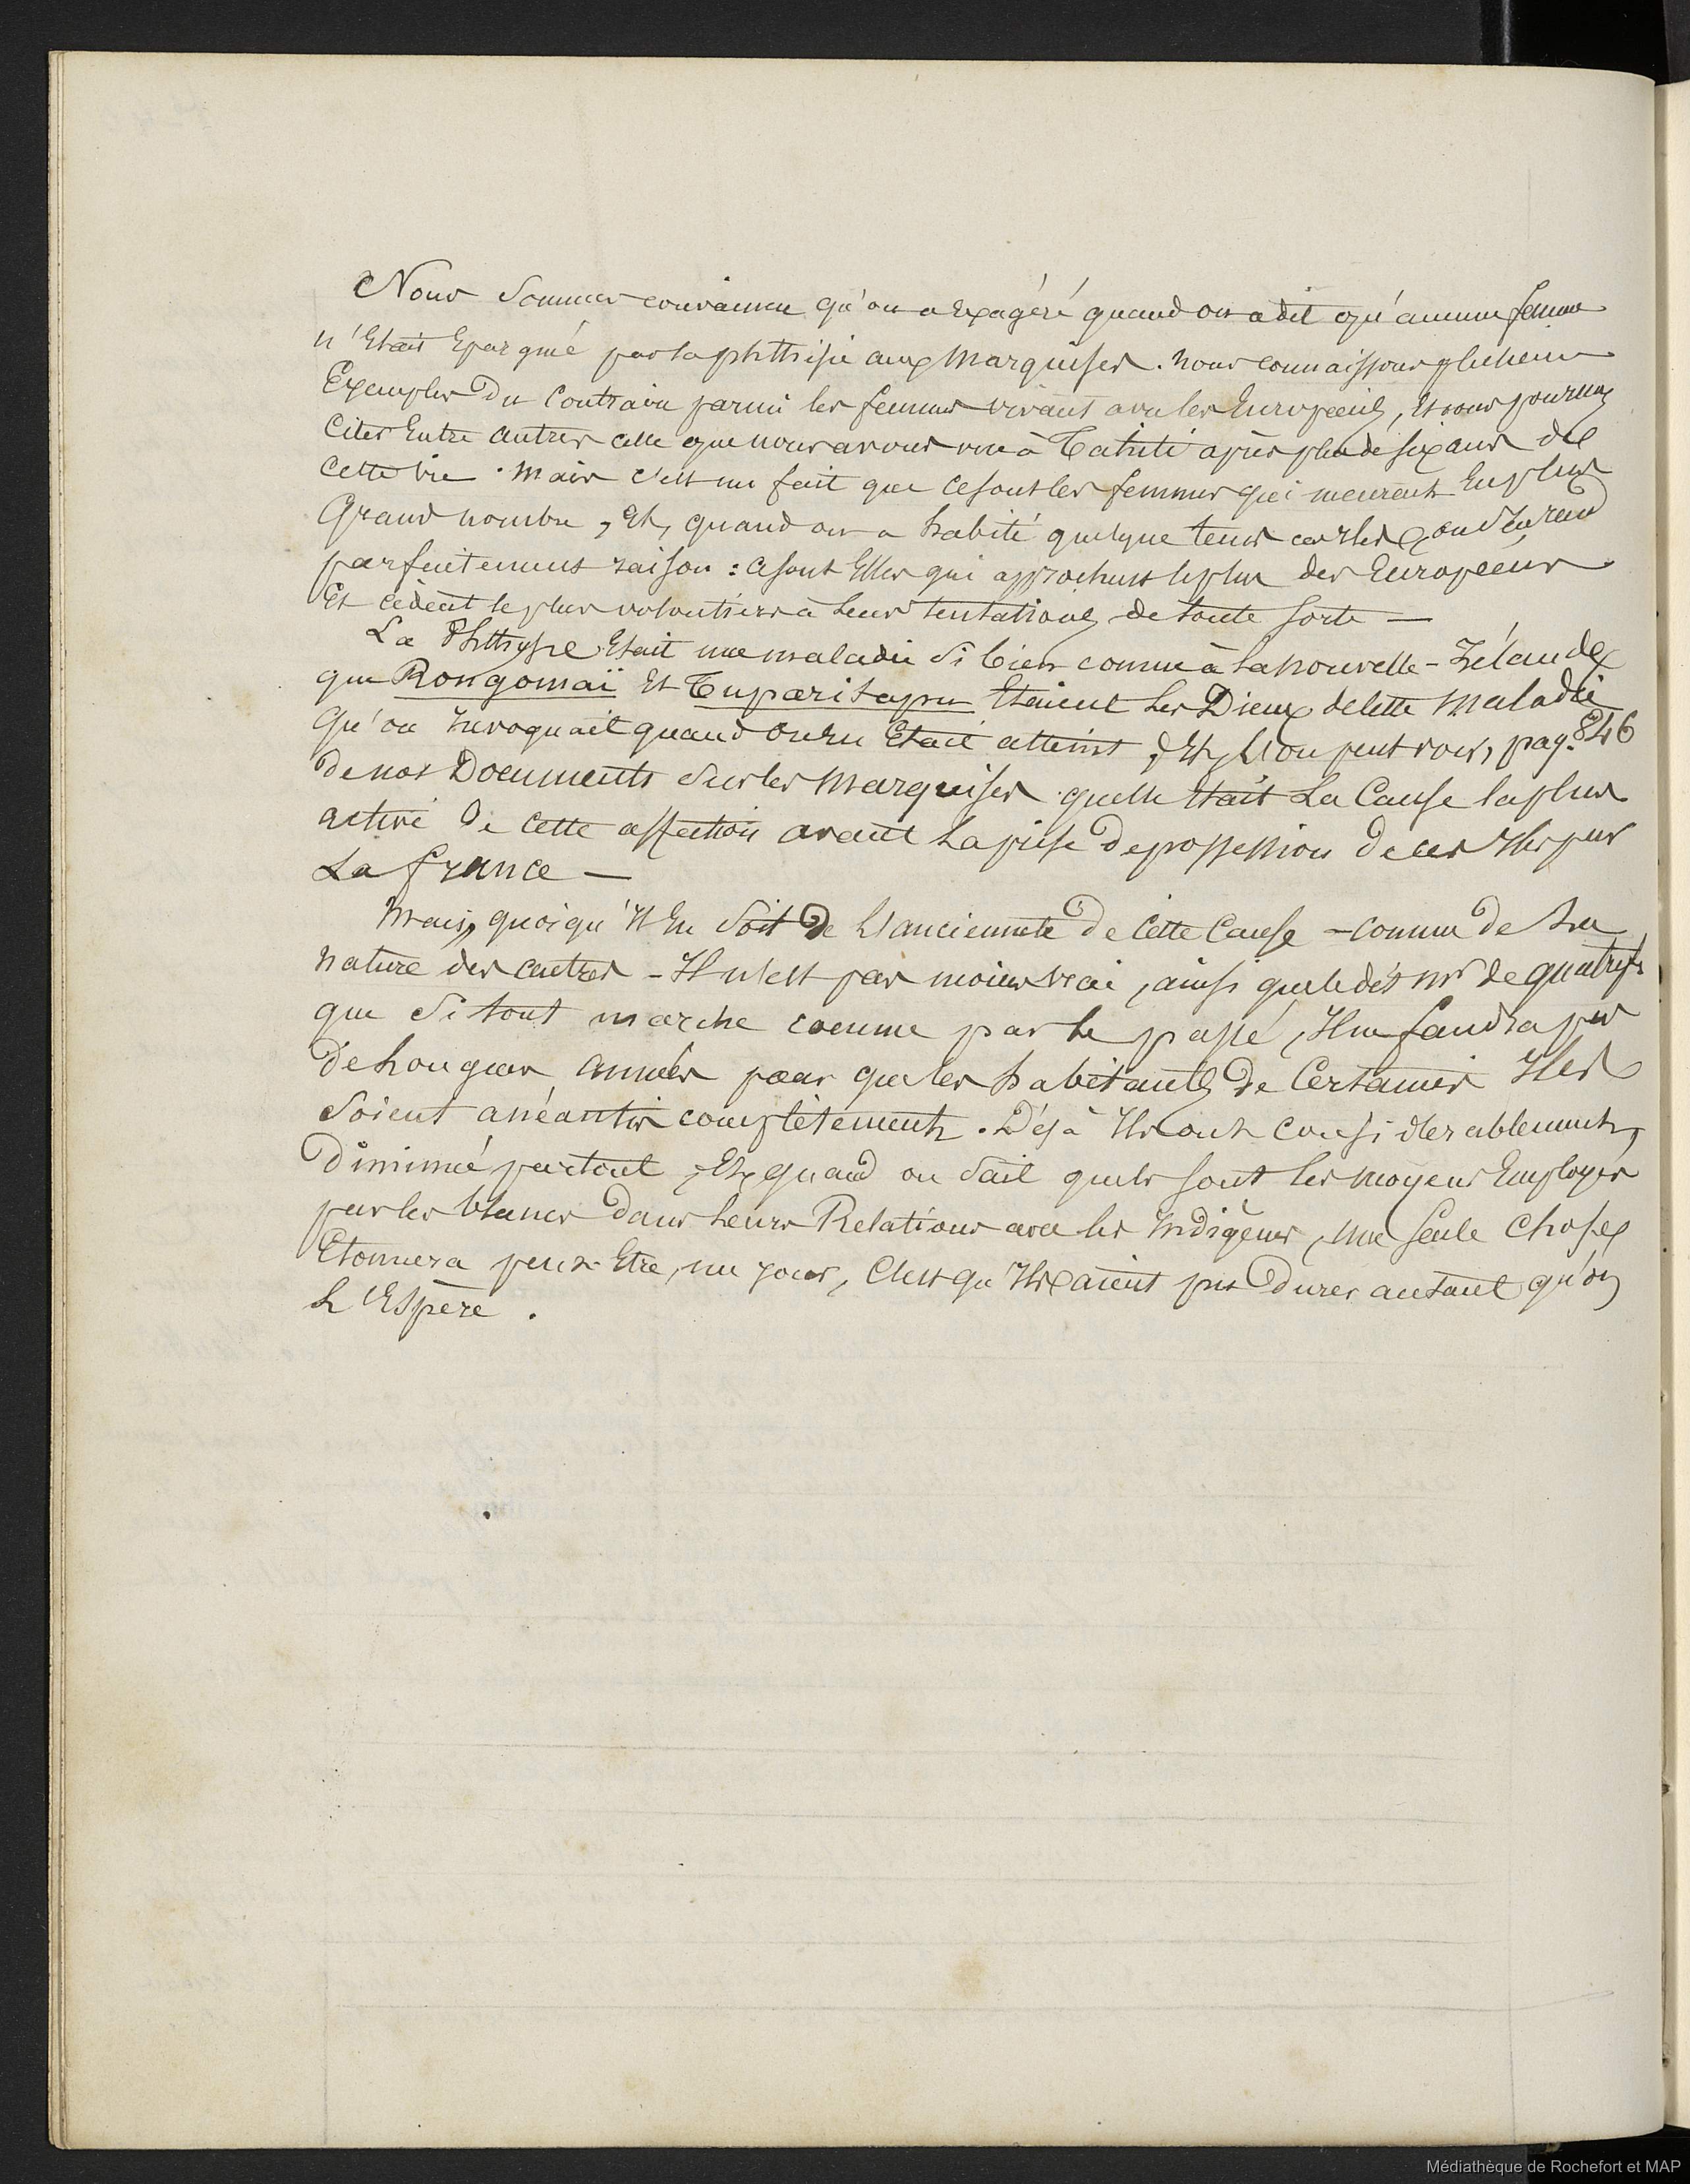 Nous sommes convaincu qu'on a exagéré quand on a dit qu'aucune femme
n'était épargné par la phthisie aux Marquises. nous connaissons plusieurs
Exemples du contraire parmi les femmes vivant avec les Européens, et nous pourrions
Citer Entre autres celle que nous avons vue à Tahiti après plus de six ans de
cette vie. Mais c'est un fait que ce sont les femmes qui meurent En plus
Grand nombre, Et, quand on a habité quelque tems ces Iles on s'en rend
parfaitement raison : ce sont Elles qui approchent le plus des Européens
Et cèdent le plus volontiers à leurs tentations de toute sorte —
La Phthysie Etait une maladie si bien connue à la nouvelle-Zélande
que Rongomaï Et Tuparitapu Etaient les Dieux de cette Maladie
Qu'on Invoquait quand on en Etait atteint, Et, l'on peut voir, pag. 846
de nos Documents sur les Marquises quelle était La Cause la plus
active de cette affection avant la prise de possession de ces Iles par
La france —
Mais, quoiqu'Il En soit de l'ancienneté de cette Cause - comme de la
nature des autres - Il n'est pas moins vrai, ainsi que le dit Mr de quatref.
que si tout marche comme par le passé, Il ne faudra pas
de longues années pour que les habitants de Certaines Iles
soient anéantis complètement. Déjà Ils ont considérablement
diminué partout, Et, quand on sait quels sont les moyens Employés
par les blancs dans leurs Relations avec les Indigènes, une seule chose
Etonnera peut-Etre, un jour, C'est qu'Ils aient pu durer autant qu'on
L'Espère.
Médiathèque de Rochefort et MAP